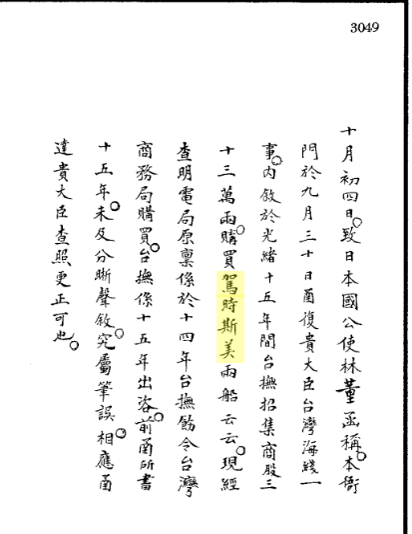 3049
十月初四日。致日本國公使林董函稱。本衙
門於九月三十日函復貴大臣台灣海綫一
事。內敘於光緒十五年間台撫招集商股三
十三萬兩。購買駕時斯美兩船云云。現經
查明電局原稟係於十四年台撫飭令台灣
商務局購買。台撫係十五年出咨。前函所書
十五年。未及分晰聲敘。究屬筆誤。相應函
達貴大臣查照更正可也。